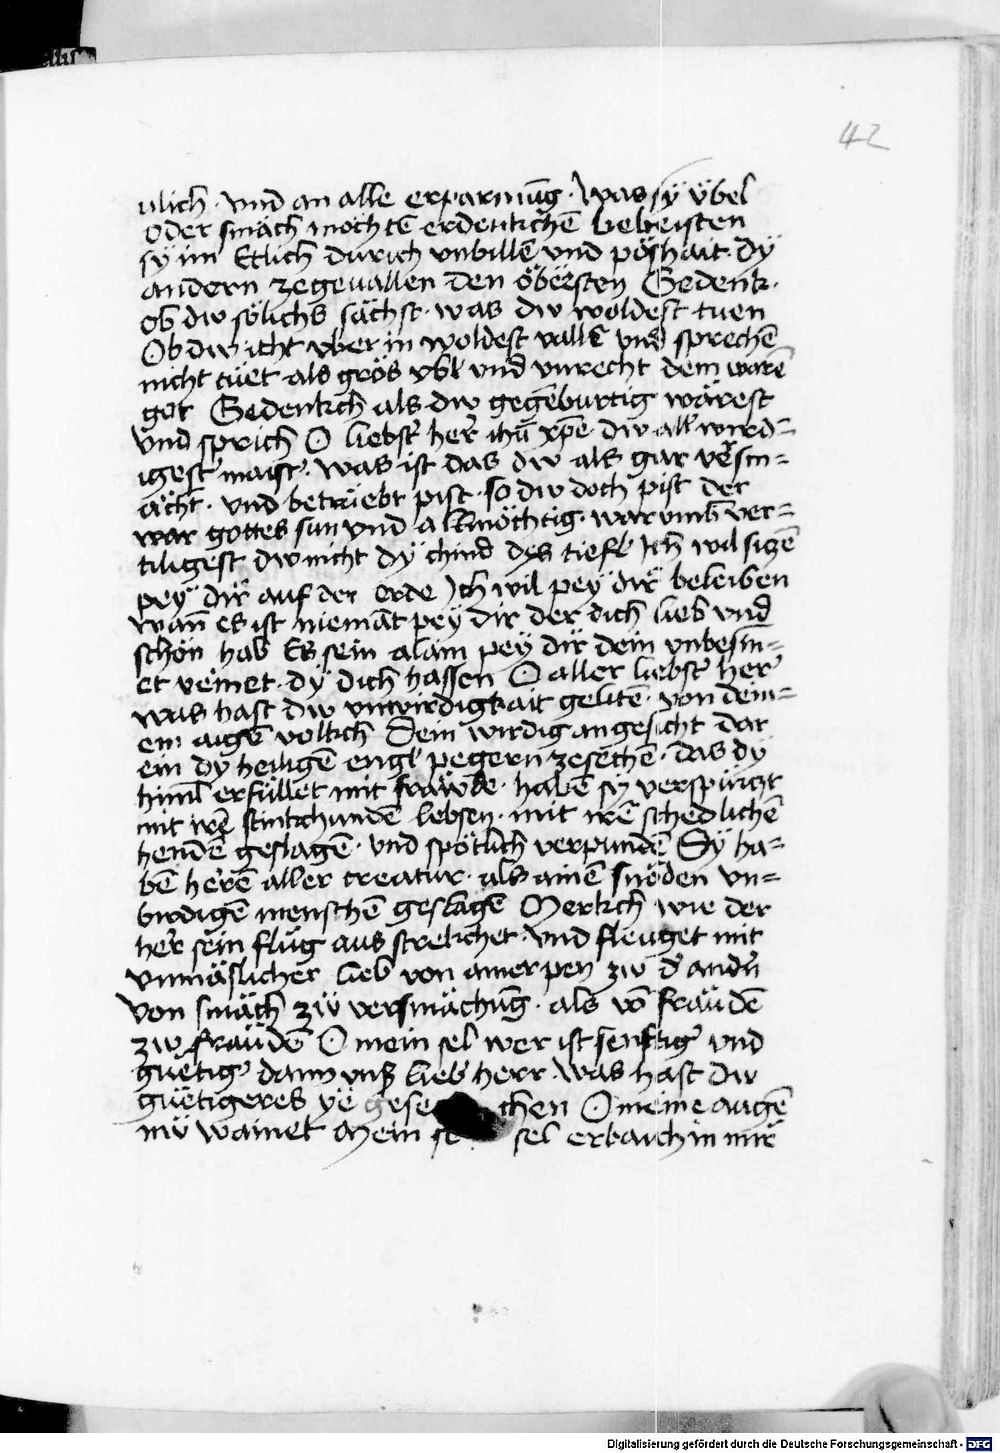 42
ulich · vnd an alle erparmūg · Was sÿ vbel
oder smäch möchtē erdenkchē beweisten
sÿ im Etlich durich vnbillē vnd pöshait · dÿ
andern zegeuallen den öbristen Gedenk ·
ob dw sölichs sächst · was dw woldest tuen
Ob dw icht vber in woldest vallē vnd sprechē
nicht tüet als grös vbl vnd vnrecht dem warē
got Gedenkch als dw gegēburtig wärest
vnd sprich O liebst' her' ihū xpē dw all' wird=
igest' maist' · was ist das dw als gar versm=
ächt · vnd betrüebt pist · so dw doch pist der
war gottes sun vnd allmöchtig · warumb ver=
tiligest dw nicht dÿ chind dys tiefl Ich wil sizē
peÿ dir auf der erde Ich wil peÿ dir beleiben
wan̄ es ist niemāt peÿ dir der dich lieb vnd
schön hab Es sein alain peÿ dir dein vnbesin̄=
et veinet · dÿ dich hassen O aller liebst' her'
was hast dw vnwirdigkait gelitē · von dein=
em aigē volkch Dein wirdig angesicht dar
ein dÿ heiligē engl pegern zesechē · das dÿ
himl erfüllet mit frawde · habē sÿ verspürtzt
mit irē stinkchundē lebsen · mit irē schedlichē
hendē geslagē · vnd spötlich verpundē Sÿ ha=
bē herē aller creatur · als ainē snöden vn=
birdigē menschē geslagē Merkch wie der
her' sein flüg aus strekchet · vnd fleuget mit
vnmäslicher lieb von ainer pen zw d' andn̄
von smäch zw versmächūg · als vō fräudē
zw fräudē O mein sel wer ist senftig' vnd
guetig' dann vnß lieb' herr · Was hast dw
güetigeres ye gese chen O meine augē
nū wainet Mein se sel erbaich in mir
Digitalisierung gefördert durch die Deutsche Forschungsgemeinschaft - DFG